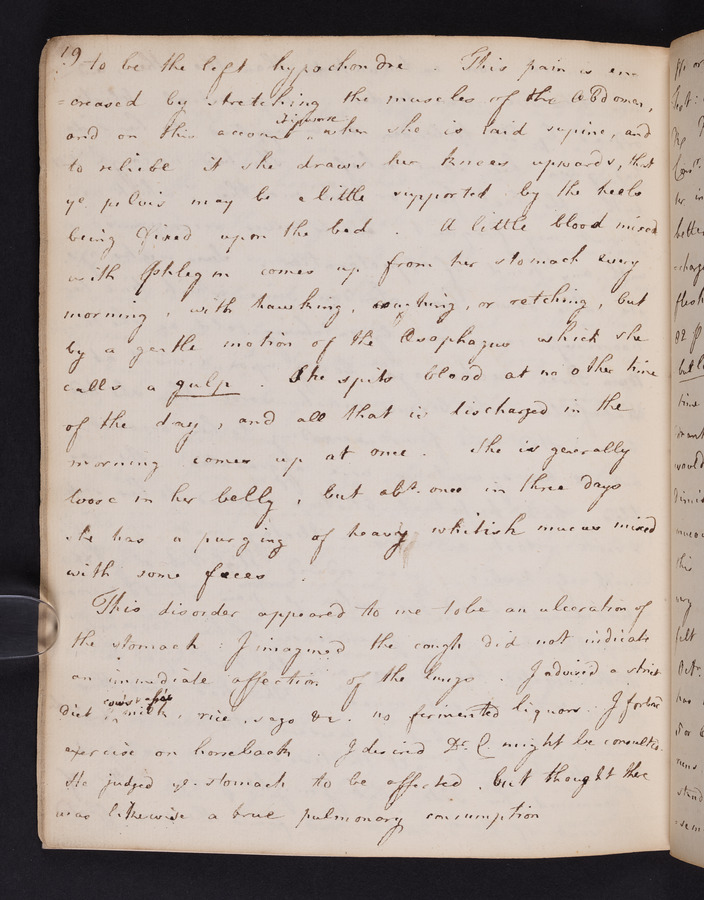 19
to be the left hypochondre. This pain is en-
=creased by stretching the muscles of the Abdomen,
and on this account when she is laid supine, and
to relieve it she draws her knees upwards, that
ye. pelvis may be a little supported by the heels
being fixed upon the bed. A little blood mixed
with Phlegm comes up from her stomach every
morning, with hawking, coughing, or retching, but
by a gentle motion of the Oesophagus which she
calls a gulp. She spits blood at no other time
of the day, and all that is discharged in the
morning comes up at once. She is generally
loose in her belly, but abt. once in three days
she has a purging of heavy whitish mucus mixed
with some fæces.
This disorder appeared to me to be an ulceration of
the stomach: I imagined the cough did not indicate
an immediate affection of the lungs. I advised a strict
diet milk, rice, sago &c. no fermented liquors. I forbad
exercise on horseback. I desired Dr. C. might be consulted.
He judged ye. stomach to be affected, but thought there
was likewise a true pulmonary consumption